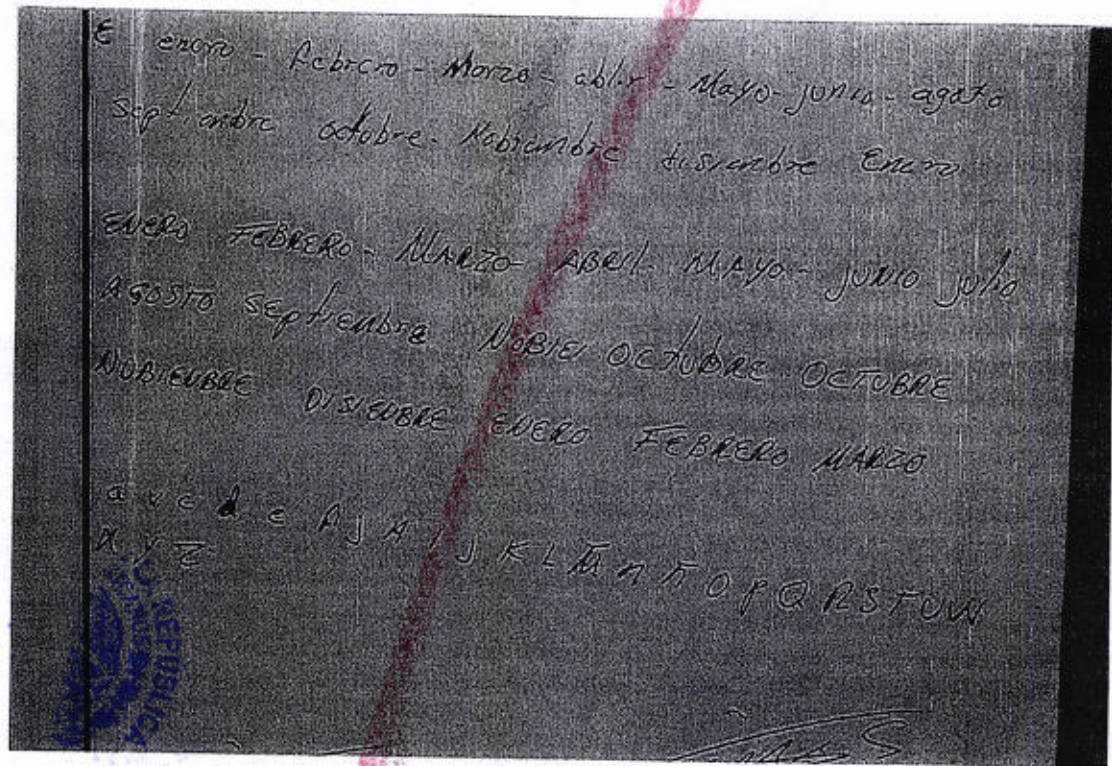 E enero - febrero - Marzo - ablil - Mayo - junio - agosto
septiembre octubre - Nobiembre disiembre Enero
ENERO FEBRERO - MARZO - ABRIL - MAYO - JUNIO julio
AGOSTO septiembre NOBIEI OCTUBRE OCTUBRE
NOBIENBRE DISIENBRE ENERO FEBRERO MARZO
a v c d e A j A i J K L M n ñ O P Q R S T U W
X Y Z
REPUBLICA